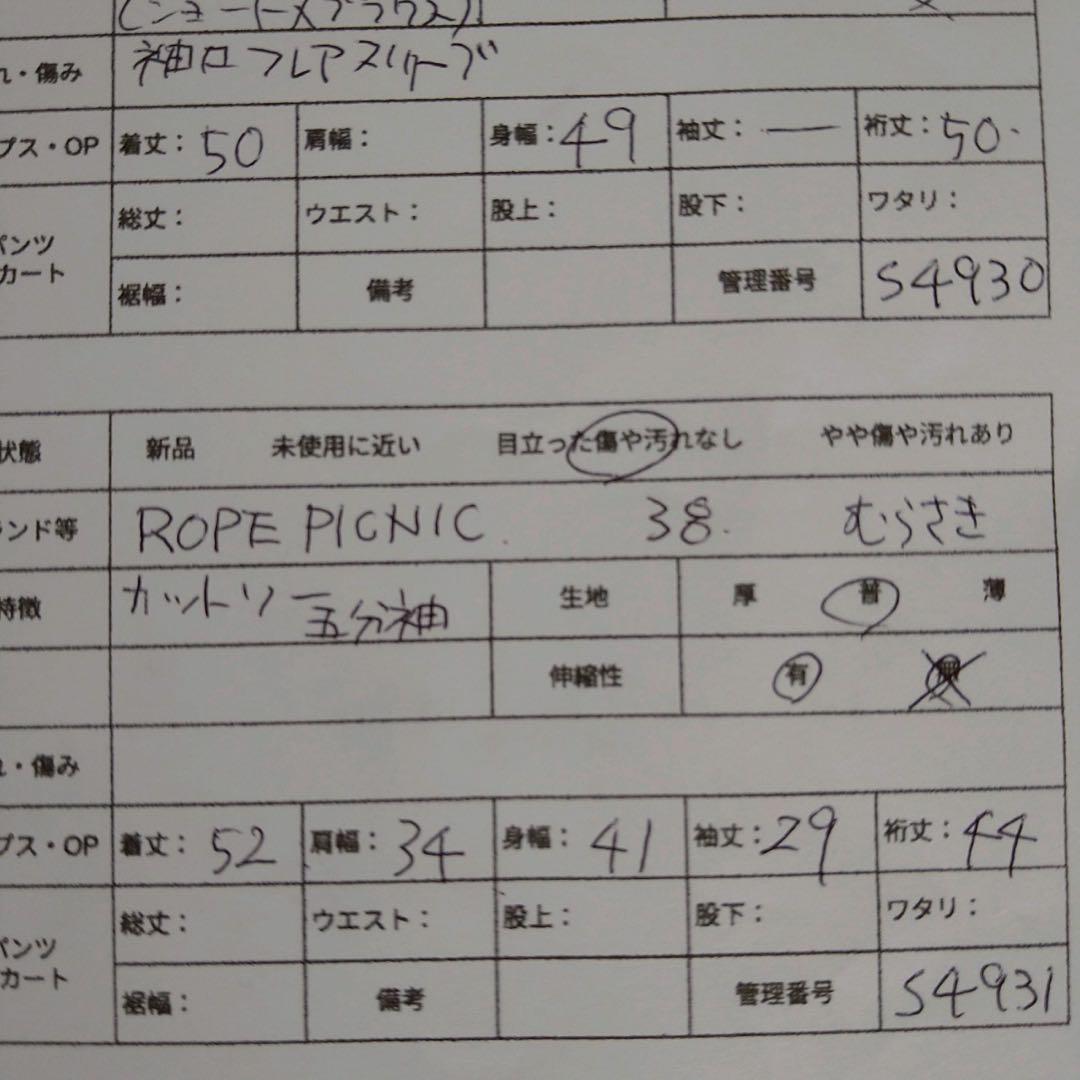 (ショートスブラウス)
れ・傷み 袖口フレアスリーブ
プス・OP 着丈：50 肩幅： 身幅：49 袖丈：― 裄丈：50.
総丈： ウエスト： 股上： 股下： ワタリ：
パンツ
カート
裾幅： 備考 管理番号 S4930
状態 新品 未使用に近い 目立った傷や汚れなし やや傷や汚れあり
ランド等 ROPE PICNIC. 38. むらさき
特徴 カットソー 五分袖 生地 厚 普 薄
伸縮性 有 無
れ・傷み
プス・OP 着丈：52 肩幅：34 身幅：41 袖丈：29 裄丈：44
総丈： ウエスト： 股上： 股下： ワタリ：
パンツ
カート
裾幅： 備考 管理番号 S4931